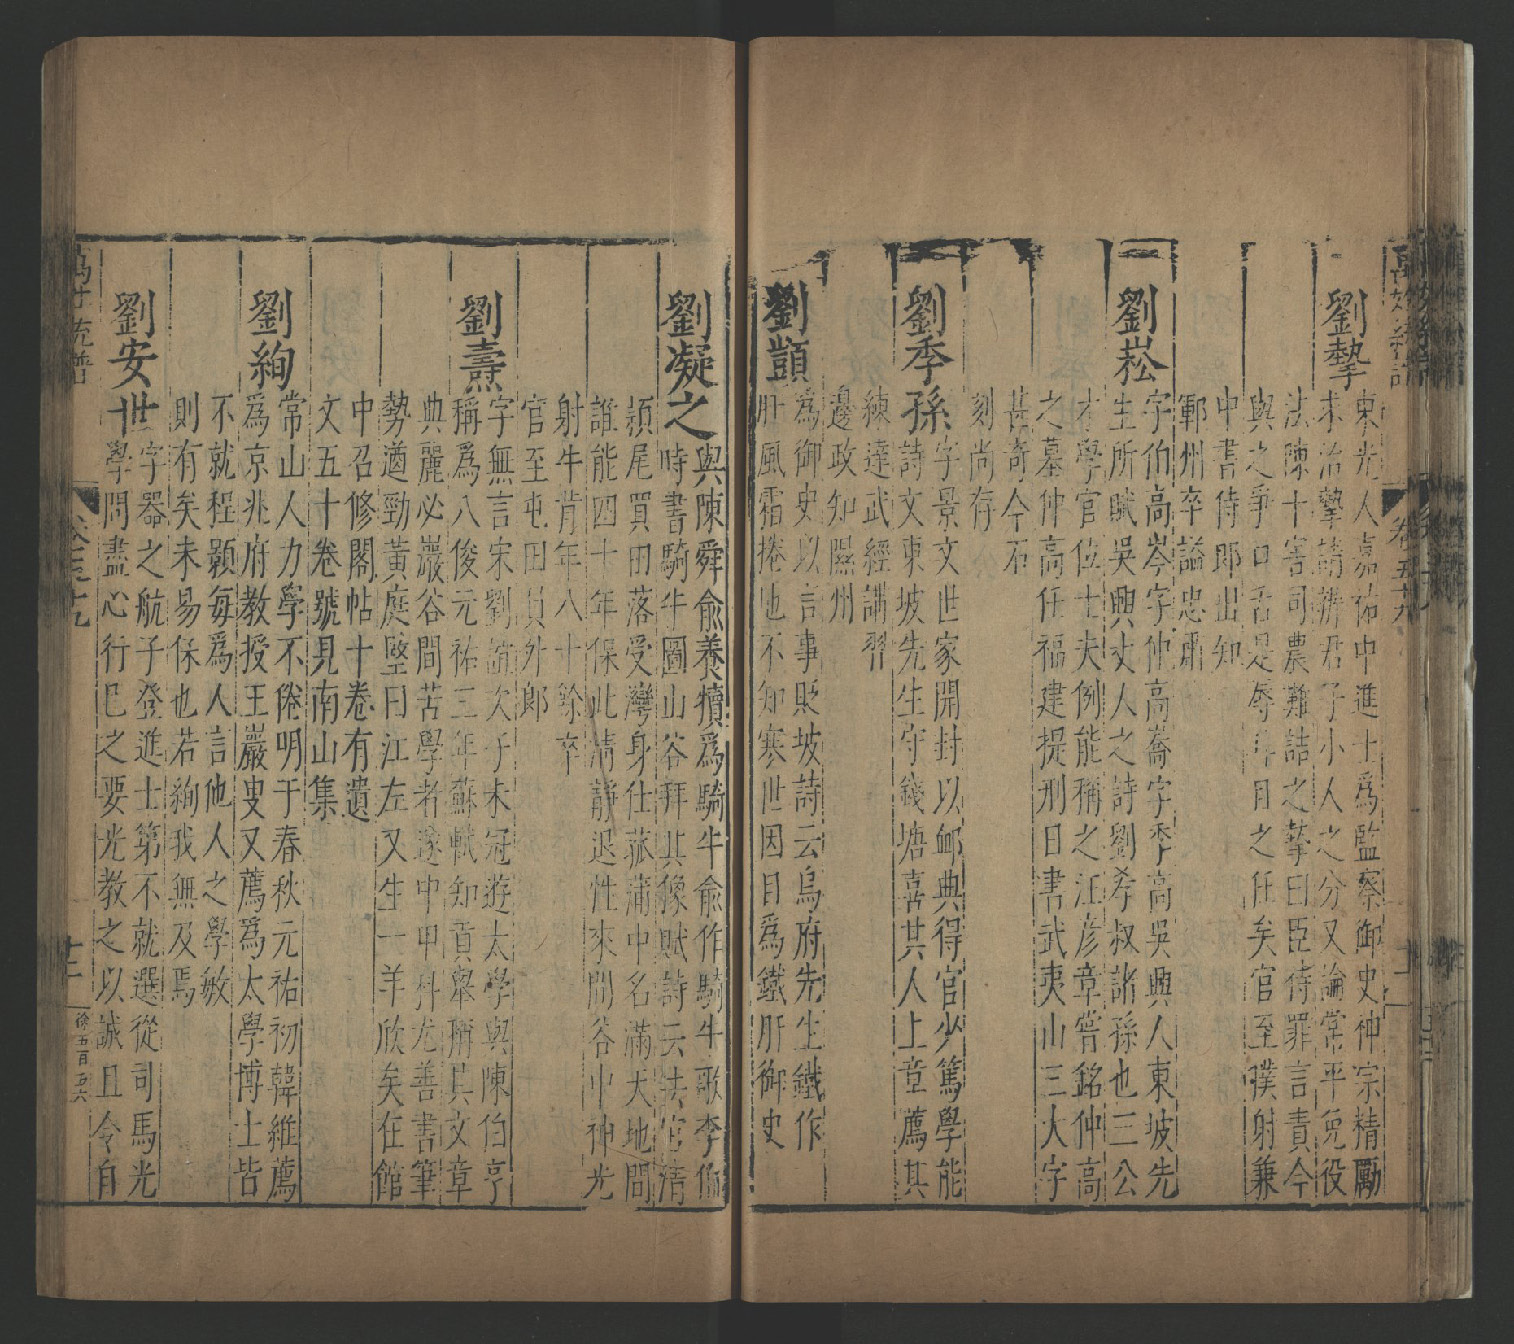 萬姓統譜
卷五十九
劉摯
東光人嘉祐中進士爲監察御史神宗精勵
求治摯請辨君子小人之分又論常平免役
法陳十害司農難詰之摯曰臣待罪言責今
與之爭口舌是辱耳目之任矣官至僕射兼
中書侍郎出知
鄆州卒謚忠肅
劉崧
字伯高岑字仲高嵡字季高吳興人東坡先
生所賦吳興丈人之詩劉孝叔諸孫也三公
才學官位士夫例能稱之江彦章嘗銘仲高
之墓仲高任福建提刑日書武夷山三大字
甚奇今石
刻尚存
劉季孫
字景文世家開封以邮典得官少篤學能
詩文東坡先生守錢塘喜其人上章薦其
練達武經講習
邊政知隰州
劉顗
爲御史以言事貶坡詩云烏府先生鐵作
肝風霜捲地不知寒世因目爲鐵肝御史
劉凝之
與陳舜俞養犢爲騎牛俞作騎牛歌李伯
時書騎牛圖山谷拜其像賦詩云法官清
潁尾買田落受灣身仕菰蒲中名滿天地間
誰能四十年保此清靜退性來閒谷中神光
射牛背年八十餘卒
官至屯田員外郎
劉燾
字無言宋劉誼次子未冠遊太學與陳伯亨
稱爲八俊元祐三年蘇軾知貢舉稱其文章
典麗必巖谷間苦學者遂中甲科尤善書筆
勢遒勁黃庭堅曰江左又生一羊欣矣在館
中召修閣帖十卷有遺
文五十卷號見南山集
劉絢
常山人力學不倦明于春秋元祐初韓維薦
爲京兆府教授王巖叟又薦爲太學博士皆
不就程顥每爲人言他人之學敏
則有矣未易保也若絢我無及焉
劉安世
字器之航子登進士第不就選從司馬光
學問盡心行已之要光教之以誠且令自
卷五十九
十二
徐五百五六